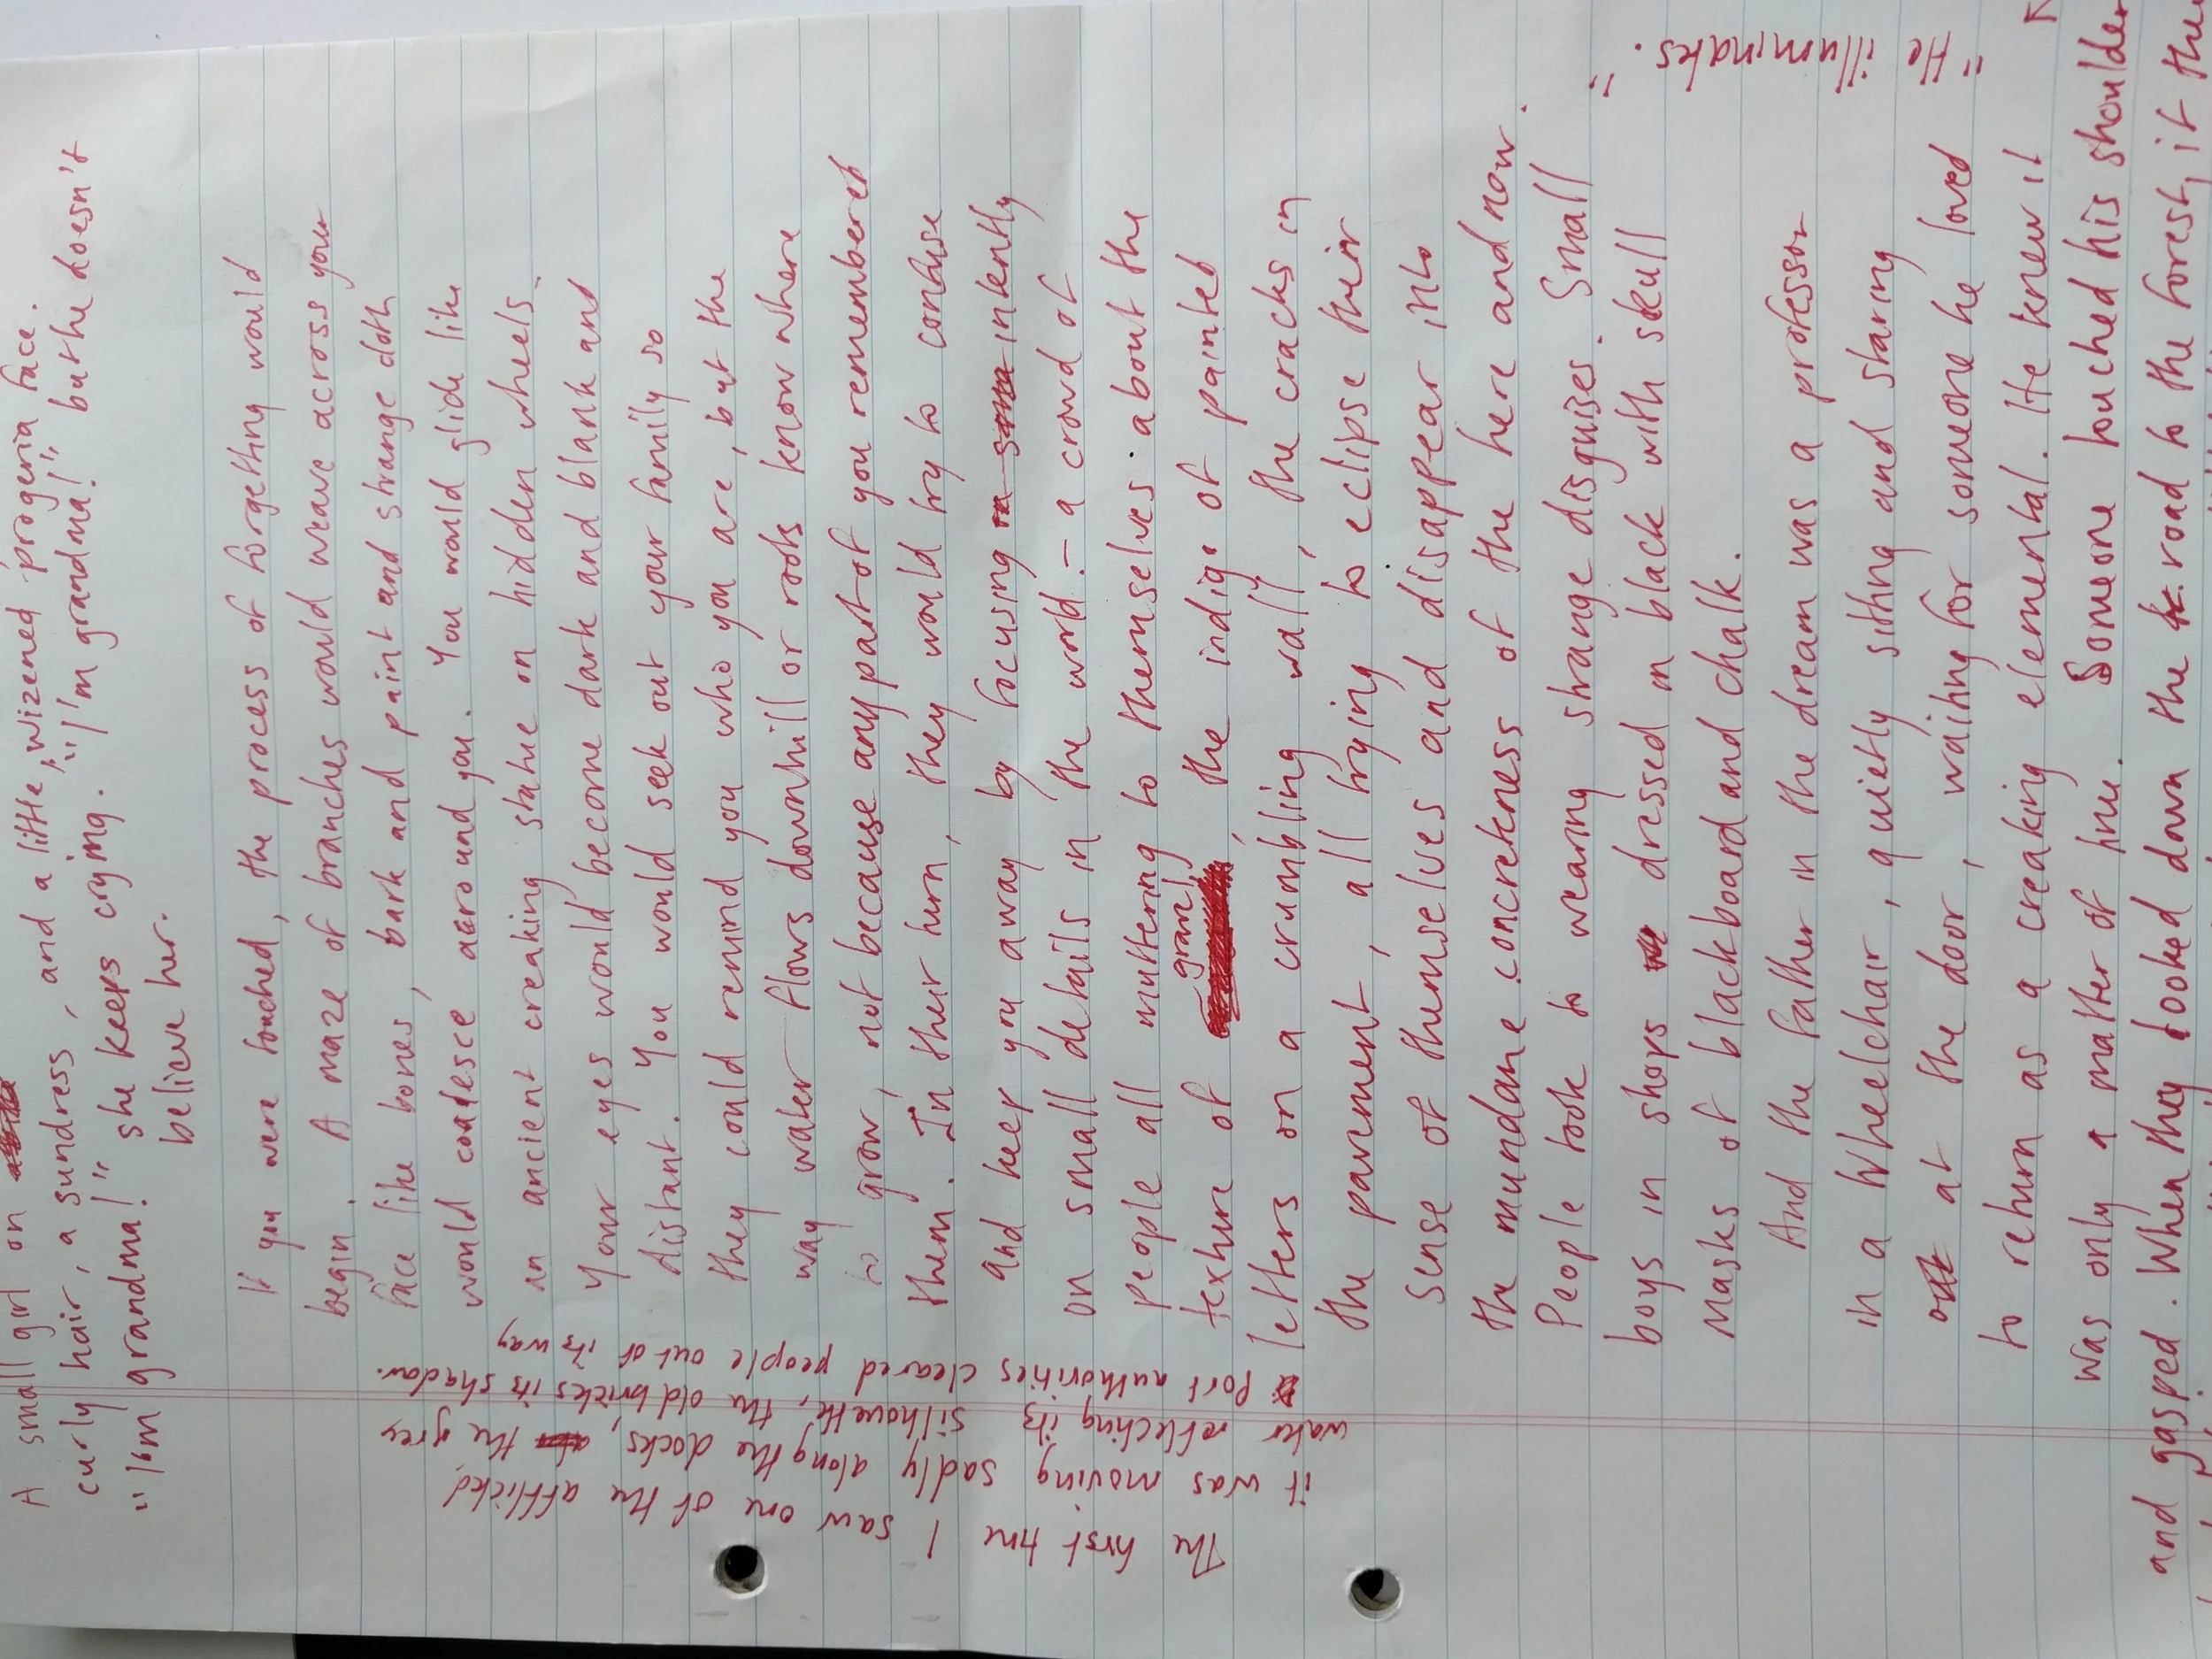 A small girl on
curly hair, a sundress, and a little, wizened 'progeria' face.
"I'm grandma!" she keeps crying. "I'm grandma!" but he doesn't
believe her.
If you were touched, the process of forgetting would
begin. A maze of branches would weave across your
face like bones, bark and paint and strange cloth
would coalesce around you. You would glide like
an ancient creaking statue on hidden wheels.
Your eyes would become dark and blank and
distant. You would seek out your family so
they could remind you who you are, but the
way water flows downhill or roots know where
to grow, not because any part of you remembered
them. In their turn, they would try to confuse
and keep you away by focusing intently
on small details in the world - a crowd of
people all muttering to themselves about the
texture of gravel, the indigo of painted
letters on a crumbling wall, the cracks in
the pavement, all trying to eclipse their
sense of themselves and disappear into
the mundane concreteness of the here and now.
People took to wearing strange disguises. Small
boys in shops dressed in black with skull
masks of blackboard and chalk.
And the father in the dream was a professor
in a wheelchair, quietly sitting and staring
at the door, waiting for someone he loved
to return as a creaking elemental. He knew it
was only a matter of time. Someone touched his shoulder
and gasped. When they looked down the road to the forest, it
The first time I saw one of the afflicted
it was moving sadly along the docks, the grey
water reflecting its silhouette, the old bricks its shadow.
Port authorities cleared people out of its way
"He illuminates."